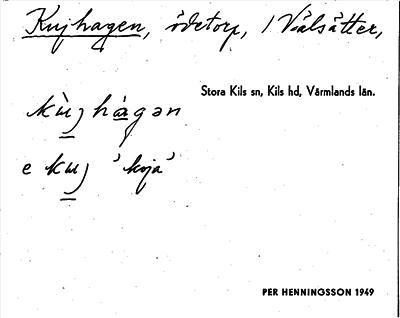 Kujhagen, ödetorp, / Vålsätter,
Stora Kils sn, Kils hd, Värmlands län.
kùj hágən
e kuj 'koja'
PER HENNINGSSON 1949